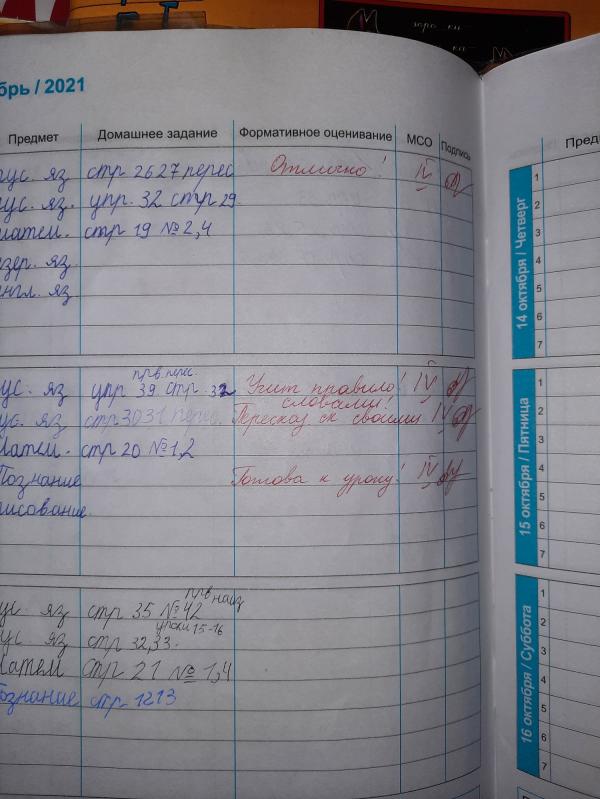 зоро ка
ка
брь / 2021
Предмет Домашнее задание Формативное оценивание МСО Подпись Пред
ус. яз стр 26 27 перес Отлично! IV
ус. яз. упр. 32 стр 29.
атем. стр 19 № 2,4
зер. яз
нгл. яз
14 октября / Четверг
1
2
3
4
5
6
7
прв. перес.
ус. яз упр 39 стр. 32 Учит правило! IV
словами!
ус. яз стр 30 31 перес. Пересказ ск своими IV
атем. стр 20 № 1,2
Познание Готова к уроку! IV
исование.
15 октября / Пятница
1
2
3
4
5
6
7
прв наиз
ус. яз стр 35 № 42
уроки 15-16
ус. яз стр 32,33.
атем стр 21 № 1,4
ознание стр 12 13
16 октября / Суббота
1
2
3
4
5
6
7